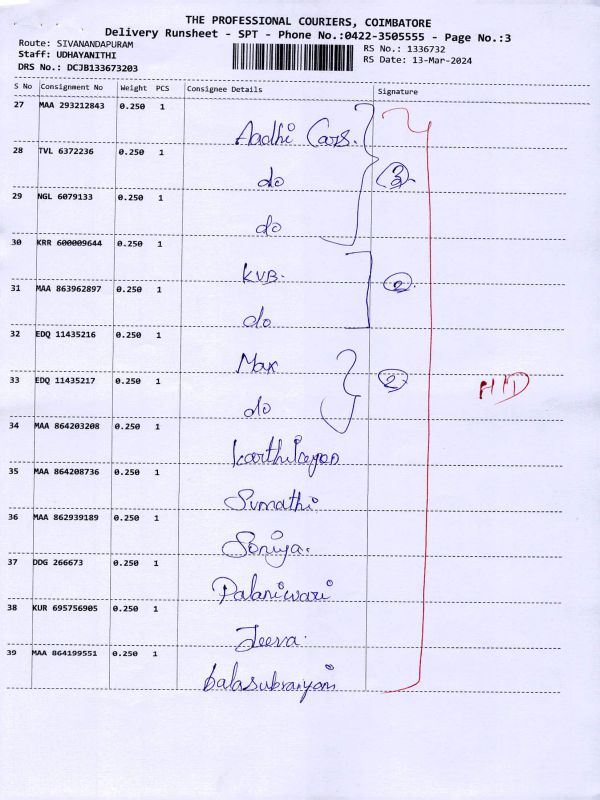 THE PROFESSIONAL COURIERS, COIMBATORE
Delivery Runsheet - SPT - Phone No.:0422-3505555 - Page No.:3
Route: SIVANANDAPURAM
RS No.: 1336732
Staff: UDHAYANITHI
RS Date: 13-Mar-2024
DRS No.: DCJB133673203
S No Consignment No Weight PCS Consignee Details Signature
27 MAA 293212843 0.250 1
Aadhi Cars.
28 TVL 6372236 0.250 1
do
3
29 NGL 6079133 0.250 1
do
30 KRR 600009644 0.250 1
KVB.
31 MAA 863962897 0.250 1
2
do
32 EDQ 11435216 0.250 1
Max
33 EDQ 11435217 0.250 1
2
HD
do
34 MAA 864203208 0.250 1
karthikeyan
35 MAA 864208736 0.250 1
Sumathi
36 MAA 862939189 0.250 1
Soniya.
37 DDG 266673 0.250 1
Palaniwari
38 KUR 695756905 0.250 1
Jeeva.
39 MAA 864199551 0.250 1
balasubraiyani